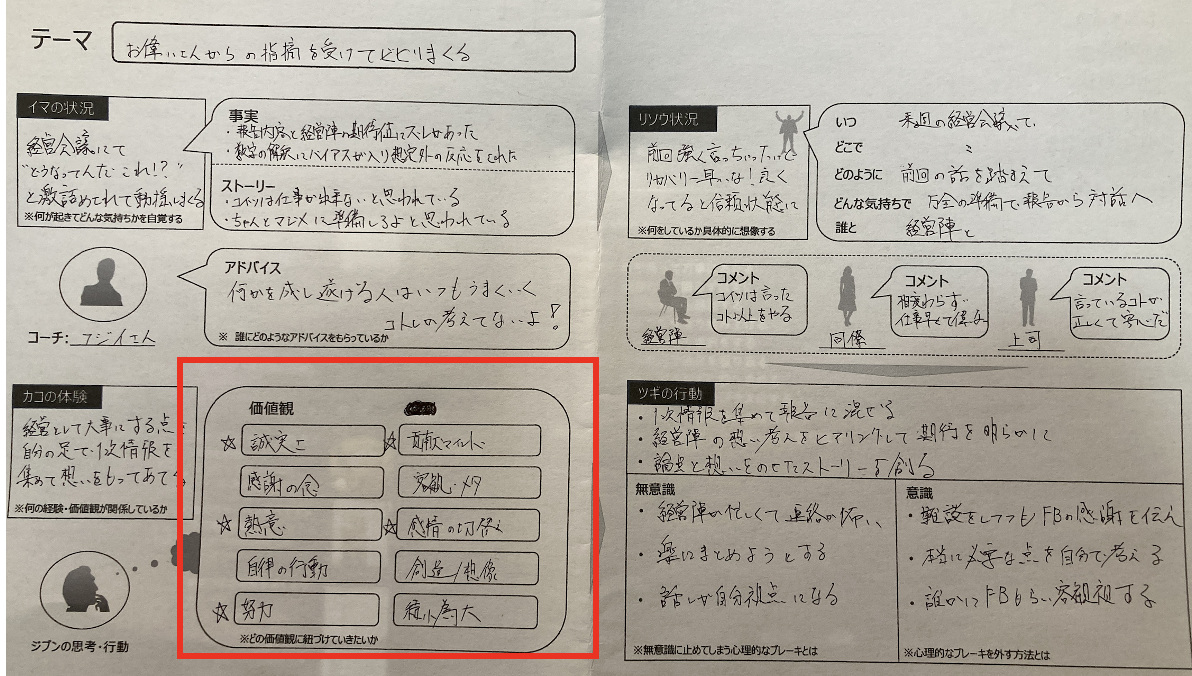 テーマ
お偉いさんからの指摘を受けてビビりまくる
イマの状況
経営会議にて
"どうなってんだこれ!?"
と激詰めされて動揺しまくる
※何が起きてどんな気持ちかを自覚する
事実
・報告内容と経営陣の期待値にズレがあった
・数字の解釈にバイアスが入り想定外の反応をされた
ストーリー
・コイツは仕事が出来ないと思われている
・ちゃんとマジメに準備しろよと思われている
コーチ:フジイさん
アドバイス
何かを成し遂げる人はいつもうまくいく
コトしか考えてないよ!
※ 誰にどのようなアドバイスをもらっているか
カコの体験
経営として大事にする点を
自分の足で、1次情報を
集めて想いをもってあてる
※何の経験・価値観が関係しているか
ジブンの思考・行動
価値観
☆誠実さ
☆貢献マインド
感謝の念
客観・メタ
☆熱意
☆感情の切替え
自律の行動
創造/想像
☆努力
積小為大
※どの価値観に紐づけていきたいか
リソウ状況
前回強く言っちゃったけど
リカバリー早いな!良く
なってると信頼状態に
※何をしているか具体的に想像する
いつ 来週の経営会議で、
どこで 〃
どのように 前回の話を踏まえて
どんな気持ちで 万全の準備で報告から対話へ
誰と 経営陣と
コメント
コイツは言った
コト以上をやる
経営陣
コメント
相変わらず
仕事早くて偉いな
同僚
コメント
言っているコトが
正しくて安心だ
上司
ツギの行動
・1次情報を集めて報告に混ぜる
・経営陣の想い考えをヒアリングして期待を明らかに
・論史と想いをのせたストーリーを創る
無意識
・経営陣が忙しくて連絡が怖い、
・楽にまとめようとする
・話しが自分視点になる
※無意識に止めてしまう心理的なブレーキとは
意識
・雑談をしつつもFBの感謝を伝え
・本当に必要な点を自分で考える
・誰かにFBもらい客観視する
※心理的なブレーキを外す方法とは